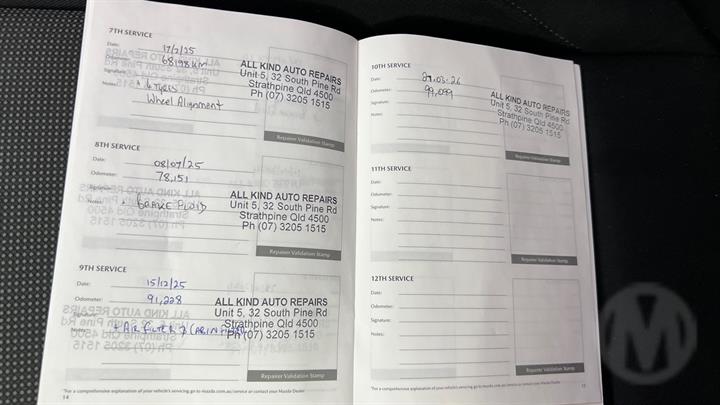 7TH SERVICE
Date: 17/2/25
Odometer: 68198 KM
Signature:
Notes: + 4 TYRES
Wheel Alignment
ALL KIND AUTO REPAIRS
Unit 5, 32 South Pine Rd
Strathpine Qld 4500
Ph (07) 3205 1515
Repairer Validation Stamp
8TH SERVICE
Date: 08/07/25
Odometer: 78,151
Signature:
Notes: + BRAKE FLUID
ALL KIND AUTO REPAIRS
Unit 5, 32 South Pine Rd
Strathpine Qld 4500
Ph (07) 3205 1515
Repairer Validation Stamp
9TH SERVICE
Date: 15/12/25
Odometer: 91,228
Signature:
Notes: + AIR FILTER & CABIN FILTER
ALL KIND AUTO REPAIRS
Unit 5, 32 South Pine Rd
Strathpine Qld 4500
Ph (07) 3205 1515
Repairer Validation Stamp
*For a comprehensive explanation of your vehicle's servicing go to mazda.com.au/service or contact your Mazda Dealer
14
10TH SERVICE
Date: 27.03.26
Odometer: 99,099
Signature:
Notes:
ALL KIND AUTO REPAIRS
Unit 5, 32 South Pine Rd
Strathpine Qld 4500
Ph (07) 3205 1515
Repairer Validation Stamp
11TH SERVICE
Date:
Odometer:
Signature:
Notes:
Repairer Validation Stamp
12TH SERVICE
Date:
Odometer:
Signature:
Notes:
Repairer Validation Stamp
*For a comprehensive explanation of your vehicle's servicing go to mazda.com.au/service or contact your Mazda Dealer
15
M